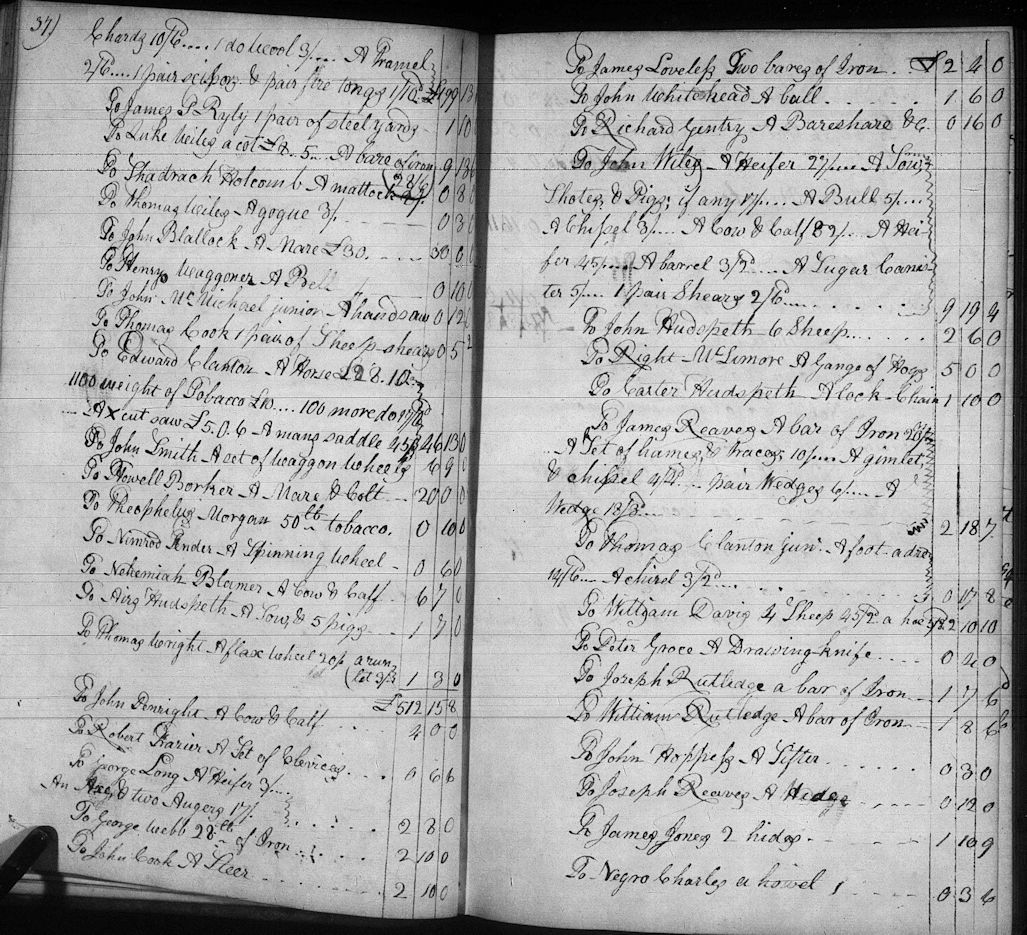 37)
Chards 10/6 .... 1 do wool 3/ .... A Tramel
2/6 .... 1 pair scissors & pair fire tongs 1/10d £ 99 13
To James P Ryly 1 pair of steelyards - 1 10
To Luke Wiles a cot £4..5.. A bare of iron 9 13 6
(28/6
To Shadrach Holcomb A mattock 8/ 0 8 0
To Thomas Wiles A gogue 3/. 0 3 0
To John Blallock A Mare £30. .... 30 0 0
To Henry Waggoner A Bell 0 10 0
To John McMichael junior A handsaw 0 12
To Thomas Cook 1 pair of Sheep shears 0 5 2
To Edward Clanton A Horse £28.10..
1100 weight of Tobacco £10 .... 100 more do
A X cut saw £5.0.6 A mans saddle 45/ 46 13 0
To John Smith A set of waggon wheels 6 9
To Howell Borker A Mare & Colt - 20 0 0
To Theophelus Morgan 50 lb tobacco. 0 10 0
To Nimrod Pender A Spinning wheel - 0 6 0
To Nehemiah Blamer A Cow & Calf .. 6 7 0
To Airs Hudspeth A Sow, & 5 pigs 1 7 0
To Thomas Wright A flax wheel 20/. a run
(let 3/ 1 3 0
£512 15 8
To John Penright A Cow & Calf 4 0 0
To Robert Frazier A Set of Clevices .... 0 6 6
To George Long A Heifer 3/ ....
An Axe, & two Augers 17/ 2 8 0
To George Webb 28 lb of Iron 2 10 0
To John Cook A Steer 2 10 0
To James Loveless Two bares of Iron. 2 4 0
To John Whitehead A bull ...... 1 6 0
To Richard Gentry A Bareshare &c. 0 16 0
To John Wiles A Heifer 22/ .... A Sow
Shotes & Pigs; if any 17/ .... A Bull 5/ ....
A Chisel 3/ ... A Cow & Calf 82/ ... A Hei
fer 45/ .... A barrel 3/2d .... A Sugar Canis
ter 5/ ... 1 pair Shears 2/6 9 19 4
To John Hudspeth 6 Sheep ...... 2 6 0
To Right McLimore A Gange of Hogs 5 0 0
To Carter Hudspeth A lock-Chain 1 10 0
To James Reaves A bar of Iron
A Set of hames & traces 10/ ... A gimlet,
& chissel 4/4d .... pair Wedges 6/ .... A
Wedge 13/3 2 18 7
To Thomas Clanton Jun. A foot adze
14/6 .... A chisel 3/2d 0 17 8
To William Davis 4 Sheep 45/2. a hoe 2 10 10
To Peter Groce A Drawing knife .... 0 4 0
To Joseph Rutledge a bar of Iron 1 7 6
To William Rutledge A bar of Iron 1 8 6
To John Hoppess A Sifter ...... 0 3 0
To Joseph Reaves A Hidge 0 12 0
To James Jones 2 hides 1 10 9
To Negro Charles a howel 0 3 6